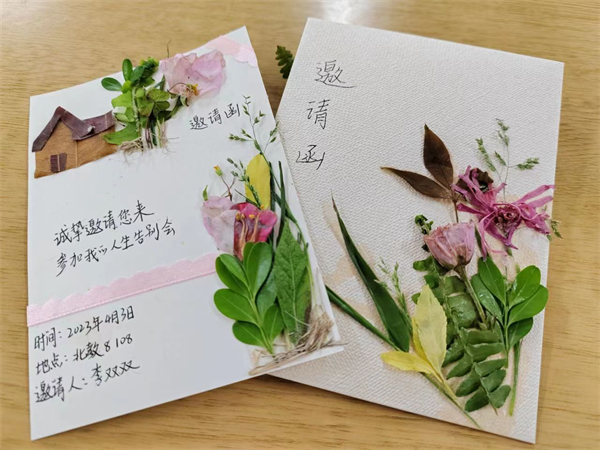 邀请函
诚挚邀请您来
参加我的人生告别会
时间：2023年4月3日
地点：北教8108
邀请人：李双双
邀
请
函